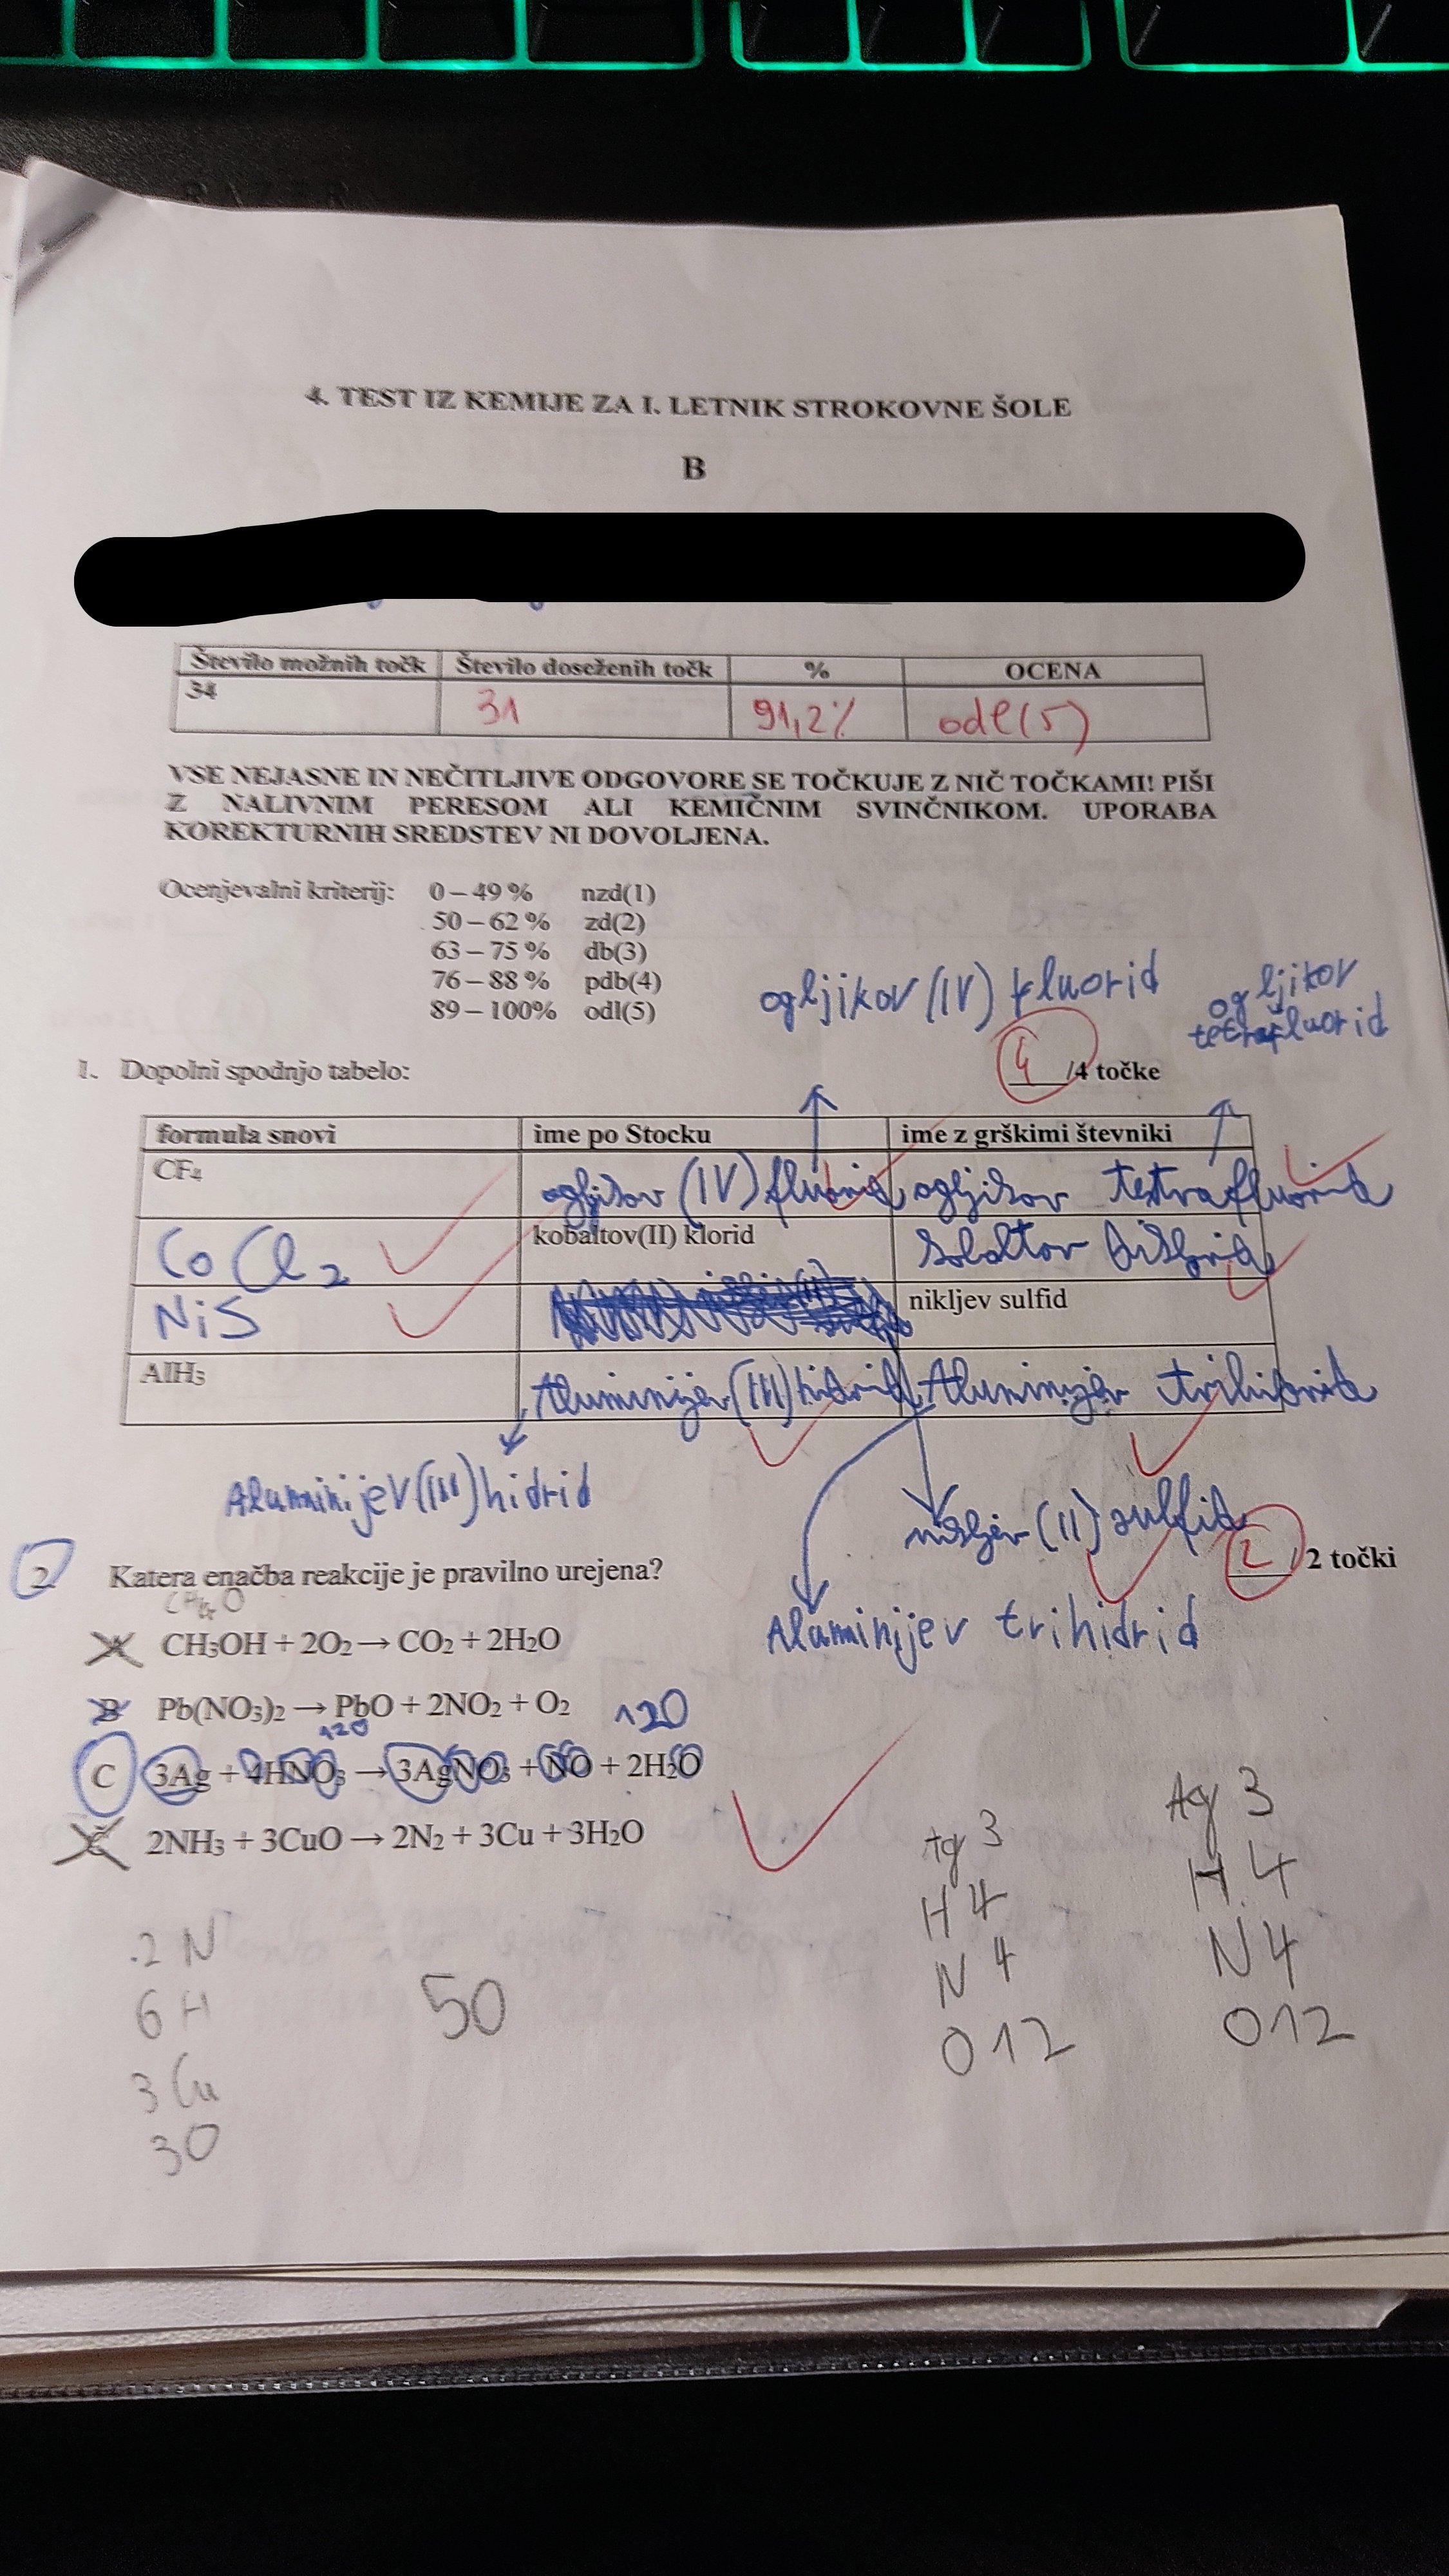 RAZER
4. TEST IZ KEMIJE ZA I. LETNIK STROKOVNE ŠOLE
B
Število možnih točk Število doseženih točk % OCENA
34 31 91,2% odl(5)
VSE NEJASNE IN NEČITLJIVE ODGOVORE SE TOČKUJE Z NIČ TOČKAMI! PIŠI
Z NALIVNIM PERESOM ALI KEMIČNIM SVINČNIKOM. UPORABA
KOREKTURNIH SREDSTEV NI DOVOLJENA.
Ocenjevalni kriterij: 0 – 49 % nzd(1)
50 – 62 % zd(2)
63 – 75 % db(3)
76 – 88 % pdb(4)
89 – 100% odl(5)
ogljikov (IV) fluorid
ogljikov
tetrafluorid
1. Dopolni spodnjo tabelo: 4 /4 točke
formula snovi ime po Stocku ime z grškimi števniki
CF₄ ogljikov (IV) fluorid ogljikov testrafluorid
CoCl₂ kobaltov(II) klorid
NiS nikljev sulfid
AlH₃ Aluminijev (III) hidrid Aluminijev trihidrid
Aluminijev (III) hidrid
nikljev (II) sulfid
2. Katera enačba reakcije je pravilno urejena? 2 / 2 točki
Aluminijev trihidrid
A CH₃OH + 2O₂ → CO₂ + 2H₂O
B Pb(NO₃)₂ → PbO + 2NO₂ + O₂ 120
120
C 3Ag + 4HNO₃ → 3AgNO₃ + NO + 2H₂O
Č 2NH₃ + 3CuO → 2N₂ + 3Cu + 3H₂O
2 N
6 H
3 Cu
3 O
50
Ag 3
H 4
N 4
O 12
Ag 3
H 4
N 4
O 12